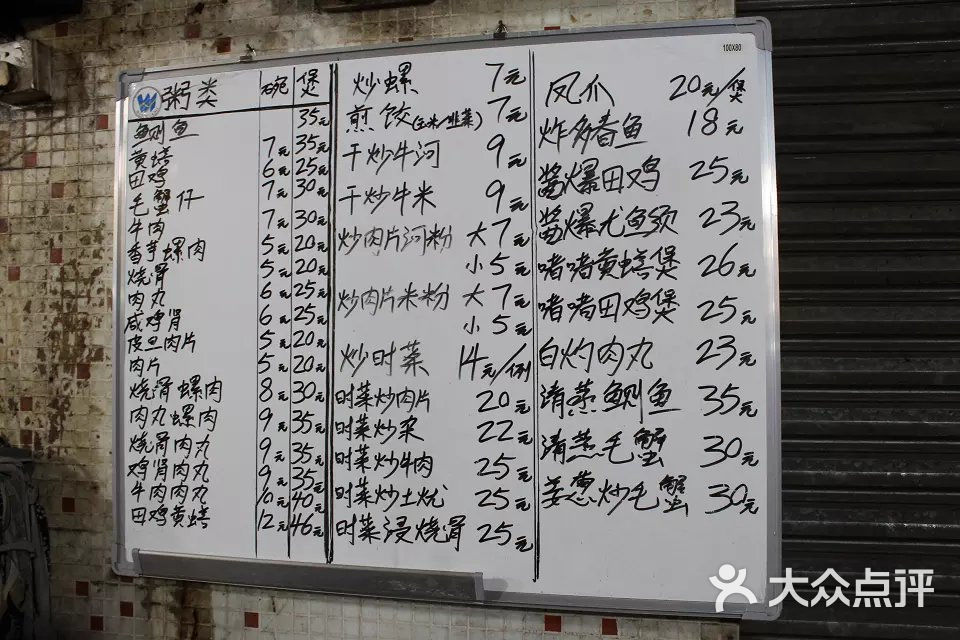 粥类 碗 煲
鲗鱼 35元
黄蟮 7元 35元
田鸡 6元 25元
毛蟹仔 7元 30元
牛肉 7元 30元
香芋螺肉 5元 20元
烧骨 5元 20元
肉丸 6元 25元
咸鸡肾 6元 25元
皮旦肉片 5元 20元
肉片 5元 20元
烧骨螺肉 8元 30元
肉丸螺肉 9元 35元
烧骨肉丸 9元 35元
鸡肾肉丸 9元 35元
牛肉肉丸 10元 40元
田鸡黄蟮 12元 46元
炒螺 7元
煎饺(玉米/韭菜) 7元
干炒牛河 9元
干炒牛米 9元
炒肉片河粉 大7元
小5元
炒肉片米粉 大7元
小5元
炒时菜 14元/例
时菜炒肉片 20元
时菜炒杂 22元
时菜炒牛肉 25元
时菜炒土尤 25元
时菜浸烧骨 25元
凤爪 20元/煲
炸多春鱼 18元
酱爆田鸡 25元
酱爆尤鱼须 23元
啫啫黄蟮煲 26元
啫啫田鸡煲 25元
白灼肉丸 23元
清蒸鲗鱼 35元
清蒸毛蟹 30元
姜葱炒毛蟹 30元
100X80
大众点评